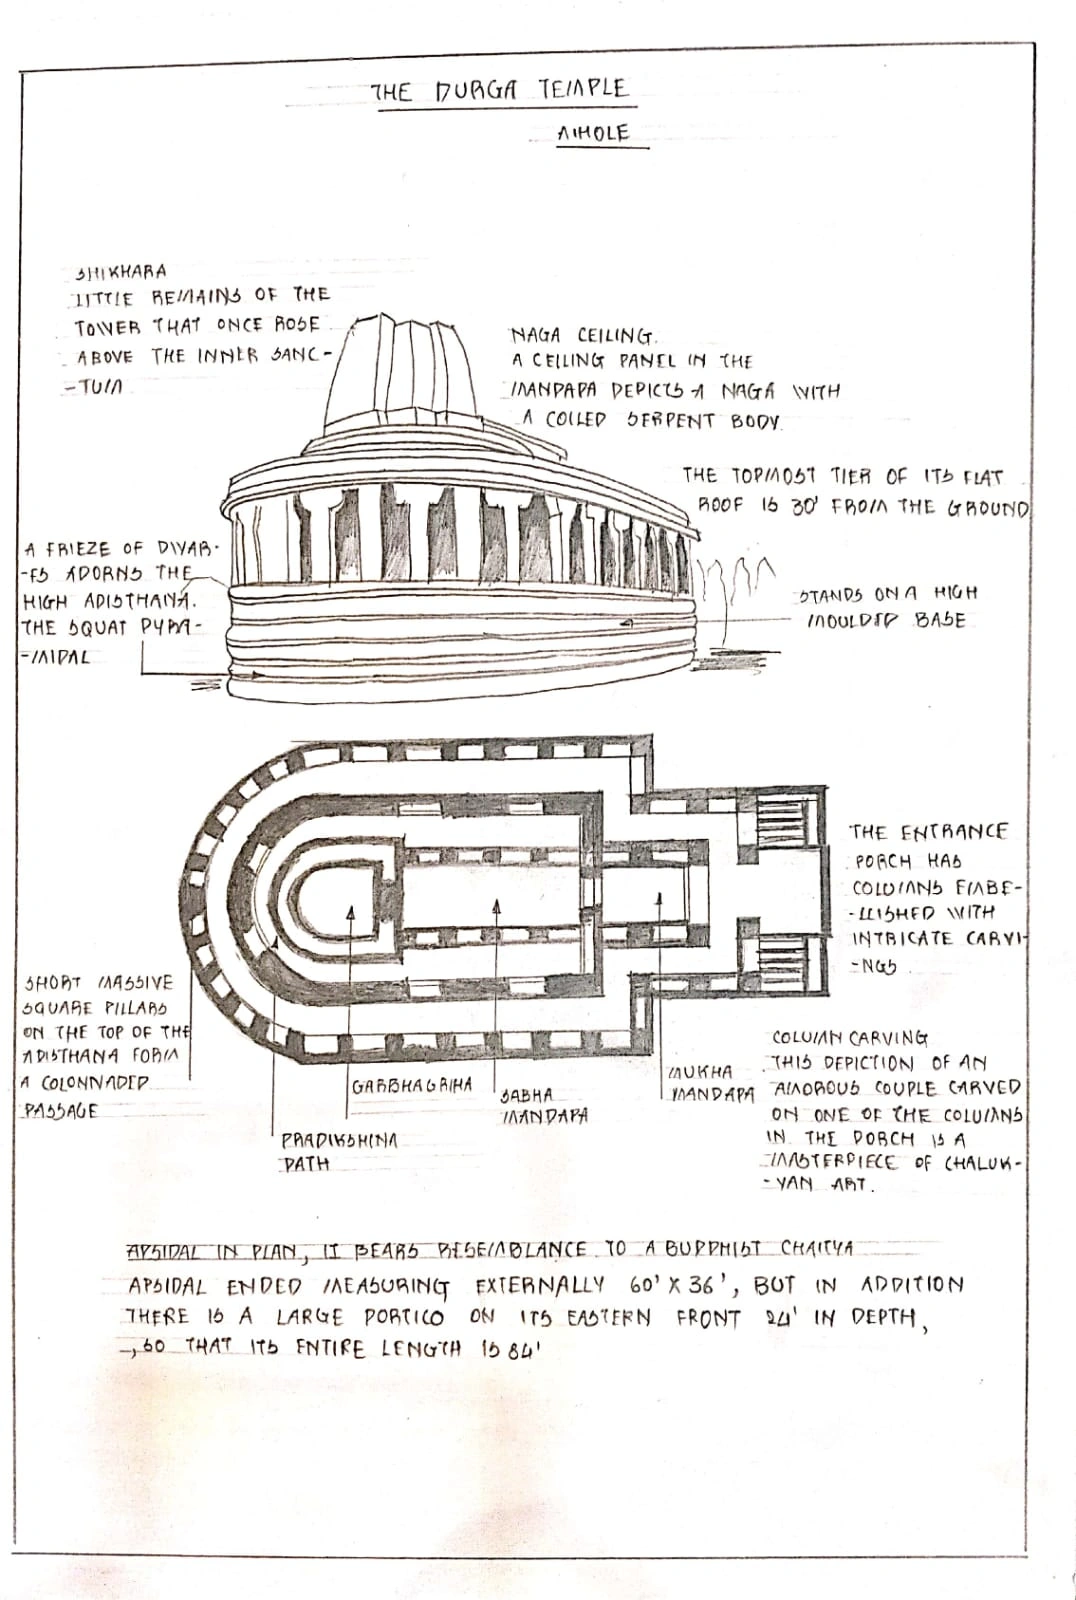 THE DURGA TEMPLE
AIHOLE
SHIKHARA
LITTLE REMAINS OF THE
TOWER THAT ONCE ROSE
ABOVE THE INNER SANC-
-TUM
NAGA CEILING.
A CEILING PANEL IN THE
MANDAPA DEPICTS A NAGA WITH
A COILED SERPENT BODY.
THE TOPMOST TIER OF ITS FLAT
ROOF IS 30' FROM THE GROUND
A FRIEZE OF DWAR-
-FS ADORNS THE
HIGH ADISTHANA.
THE SQUAT PYRA-
-MIDAL
STANDS ON A HIGH
MOULDED BASE
THE ENTRANCE
PORCH HAS
COLUMNS EMBE-
-LLISHED WITH
INTRICATE CARVI-
-NGS
SHORT MASSIVE
SQUARE PILLARS
ON THE TOP OF THE
ADISTHANA FORM
A COLONNADED
PASSAGE
GARBHAGRIHA
SABHA
MANDAPA
MUKHA
MANDAPA
PRADIKSHINA
PATH
COLUMN CARVING
THIS DEPICTION OF AN
AMOROUS COUPLE CARVED
ON ONE OF THE COLUMNS
IN THE PORCH IS A
MASTERPIECE OF CHALUK-
-YAN ART.
APSIDAL IN PLAN, IT BEARS RESEMBLANCE TO A BUDDHIST CHAITYA
APSIDAL ENDED MEASURING EXTERNALLY 60' X 36', BUT IN ADDITION
THERE IS A LARGE PORTICO ON ITS EASTERN FRONT 24' IN DEPTH,
-, SO THAT ITS ENTIRE LENGTH IS 84'